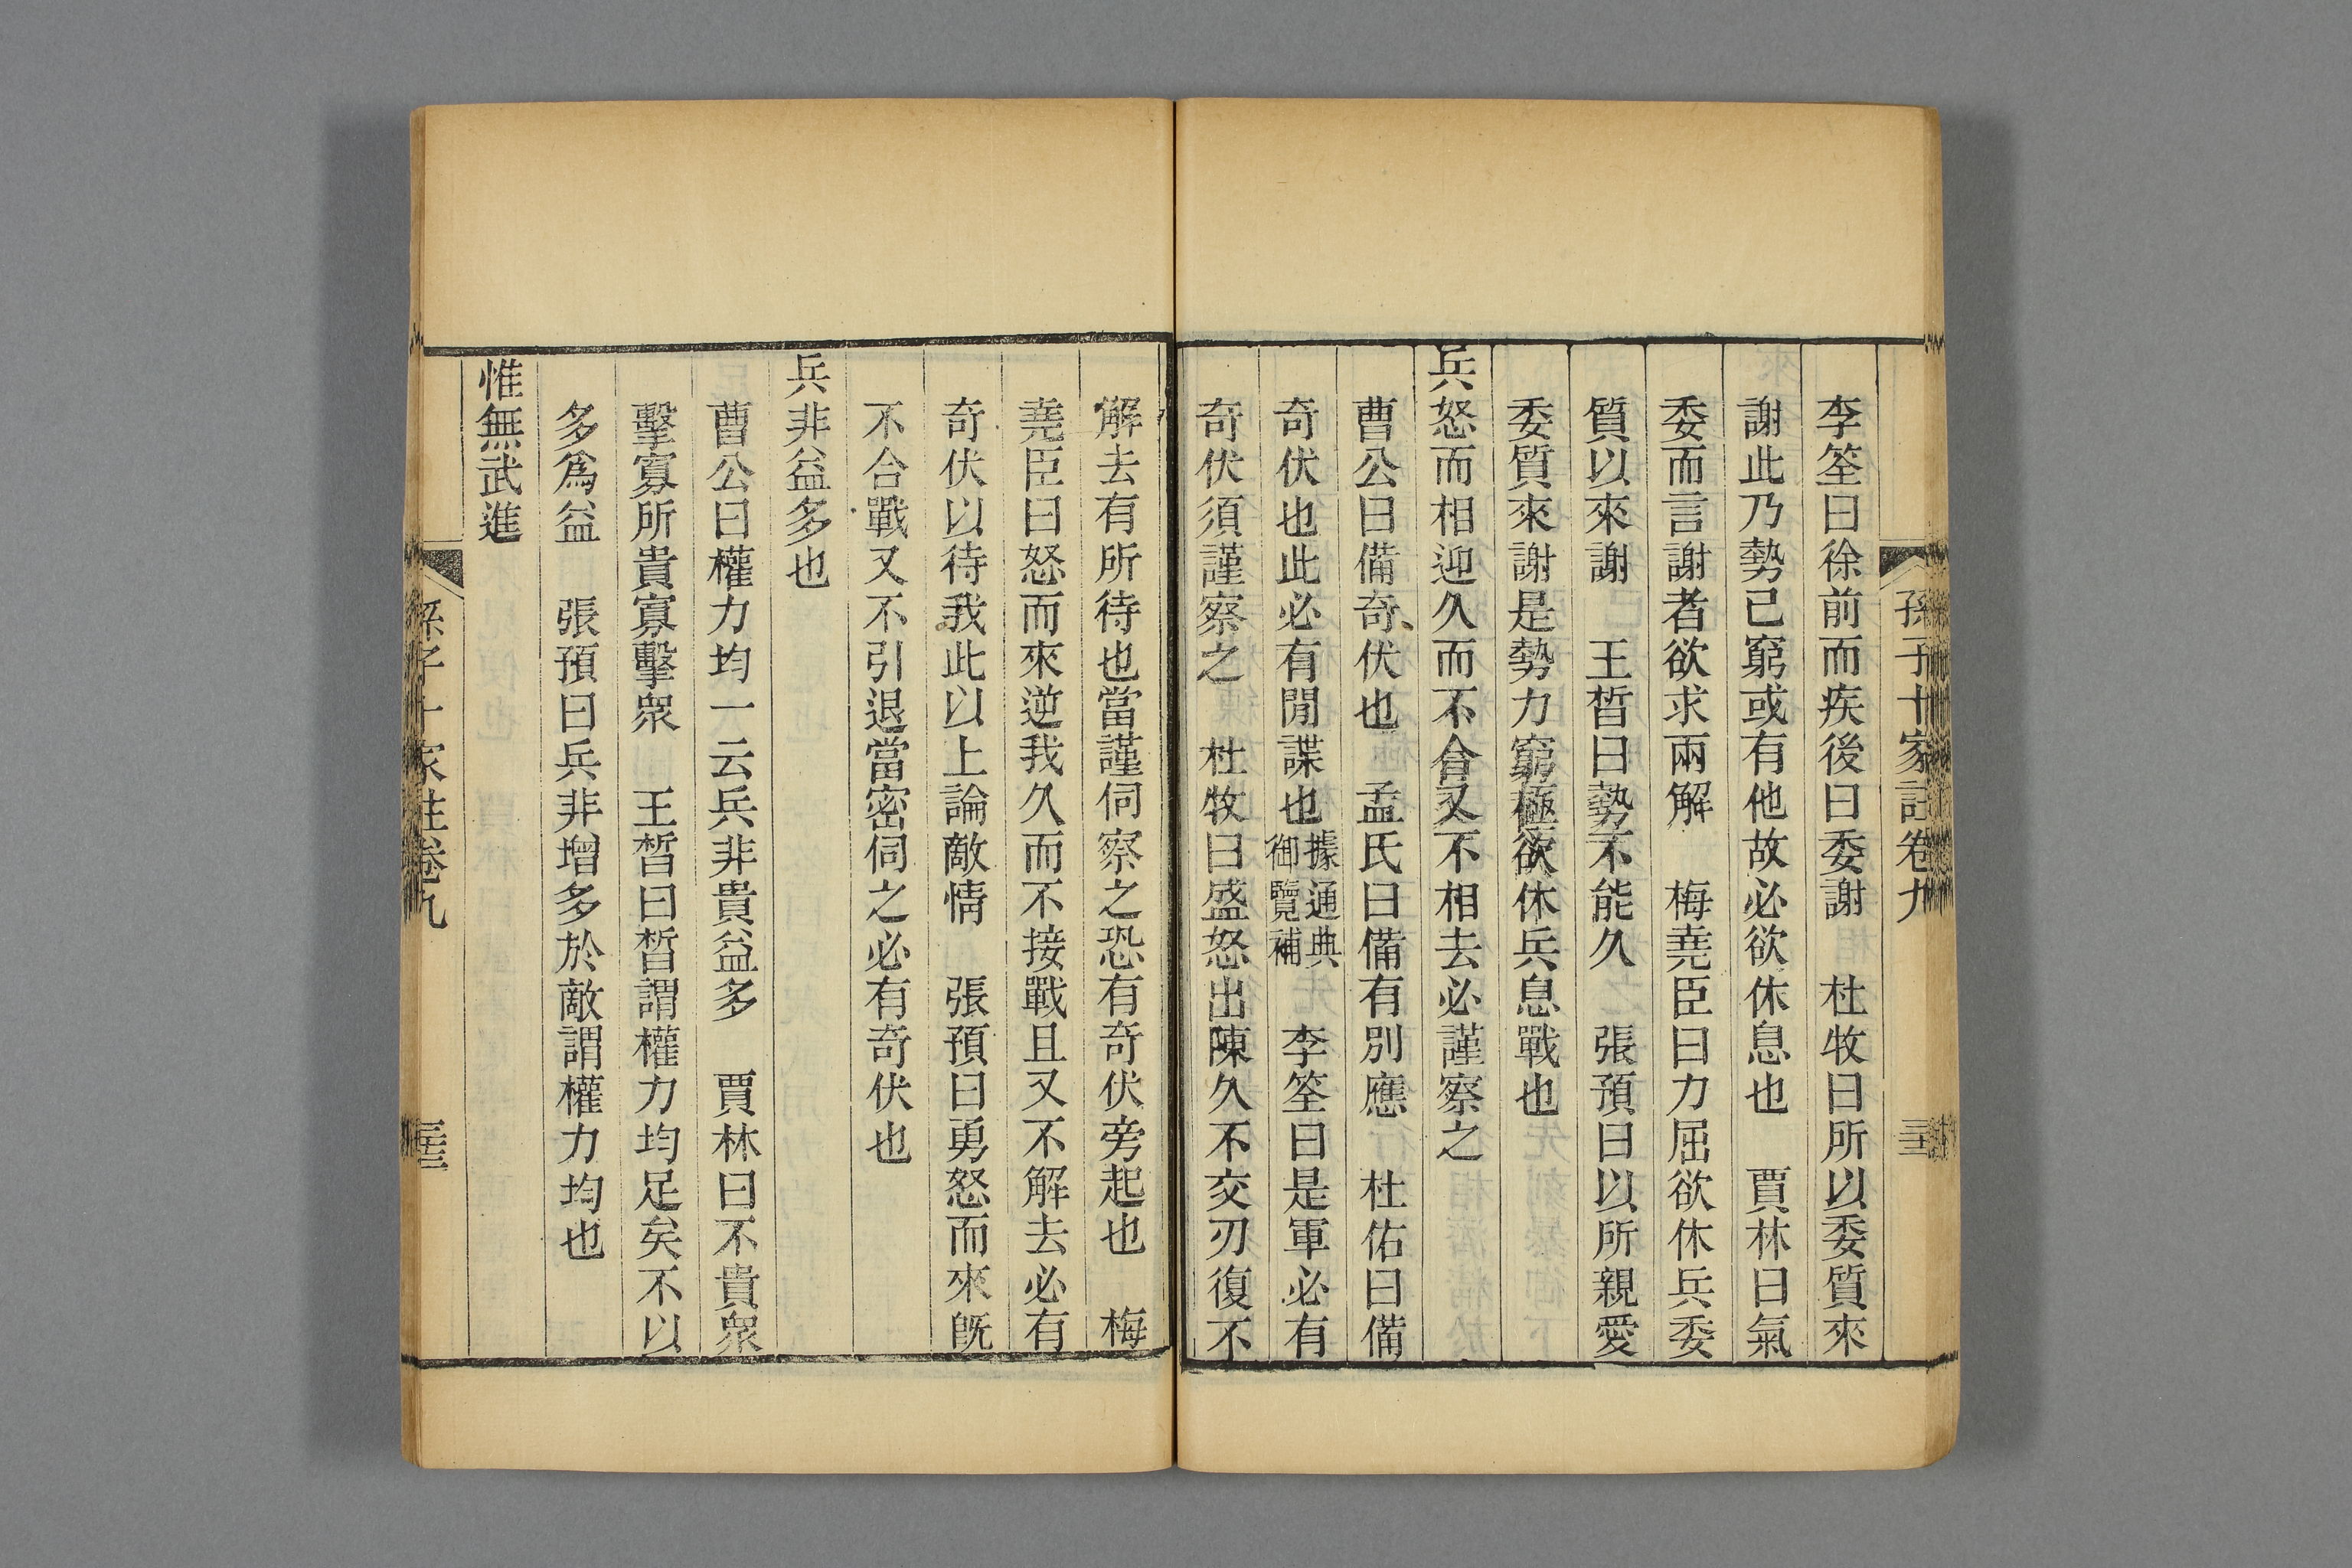 孫子十家註卷九
李筌曰徐前而疾後曰委謝　杜牧曰所以委質來
謝此乃勢已窮或有他故必欲休息也　賈林曰氣
委而言謝者欲求兩解　梅堯臣曰力屈欲休兵委
質以來謝　王晳曰勢不能久　張預曰以所親愛
委質來謝是勢力窮極欲休兵息戰也
兵怒而相迎久而不合又不相去必謹察之
曹公曰備奇伏也　孟氏曰備有別應　杜佑曰備
奇伏也此必有閒諜也據通典御覽補　李筌曰是軍必有
奇伏須謹察之　杜牧曰盛怒出陳久不交刃復不
解去有所待也當謹伺察之恐有奇伏旁起也　梅
堯臣曰怒而來逆我久而不接戰且又不解去必有
奇伏以待我此以上論敵情　張預曰勇怒而來旣
不合戰又不引退當密伺之必有奇伏也
兵非益多也
曹公曰權力均一云兵非貴益多　賈林曰不貴衆
擊寡所貴寡擊衆　王晳曰晳謂權力均足矣不以
多爲益　張預曰兵非增多於敵謂權力均也
惟無武進
孫子十家註卷九